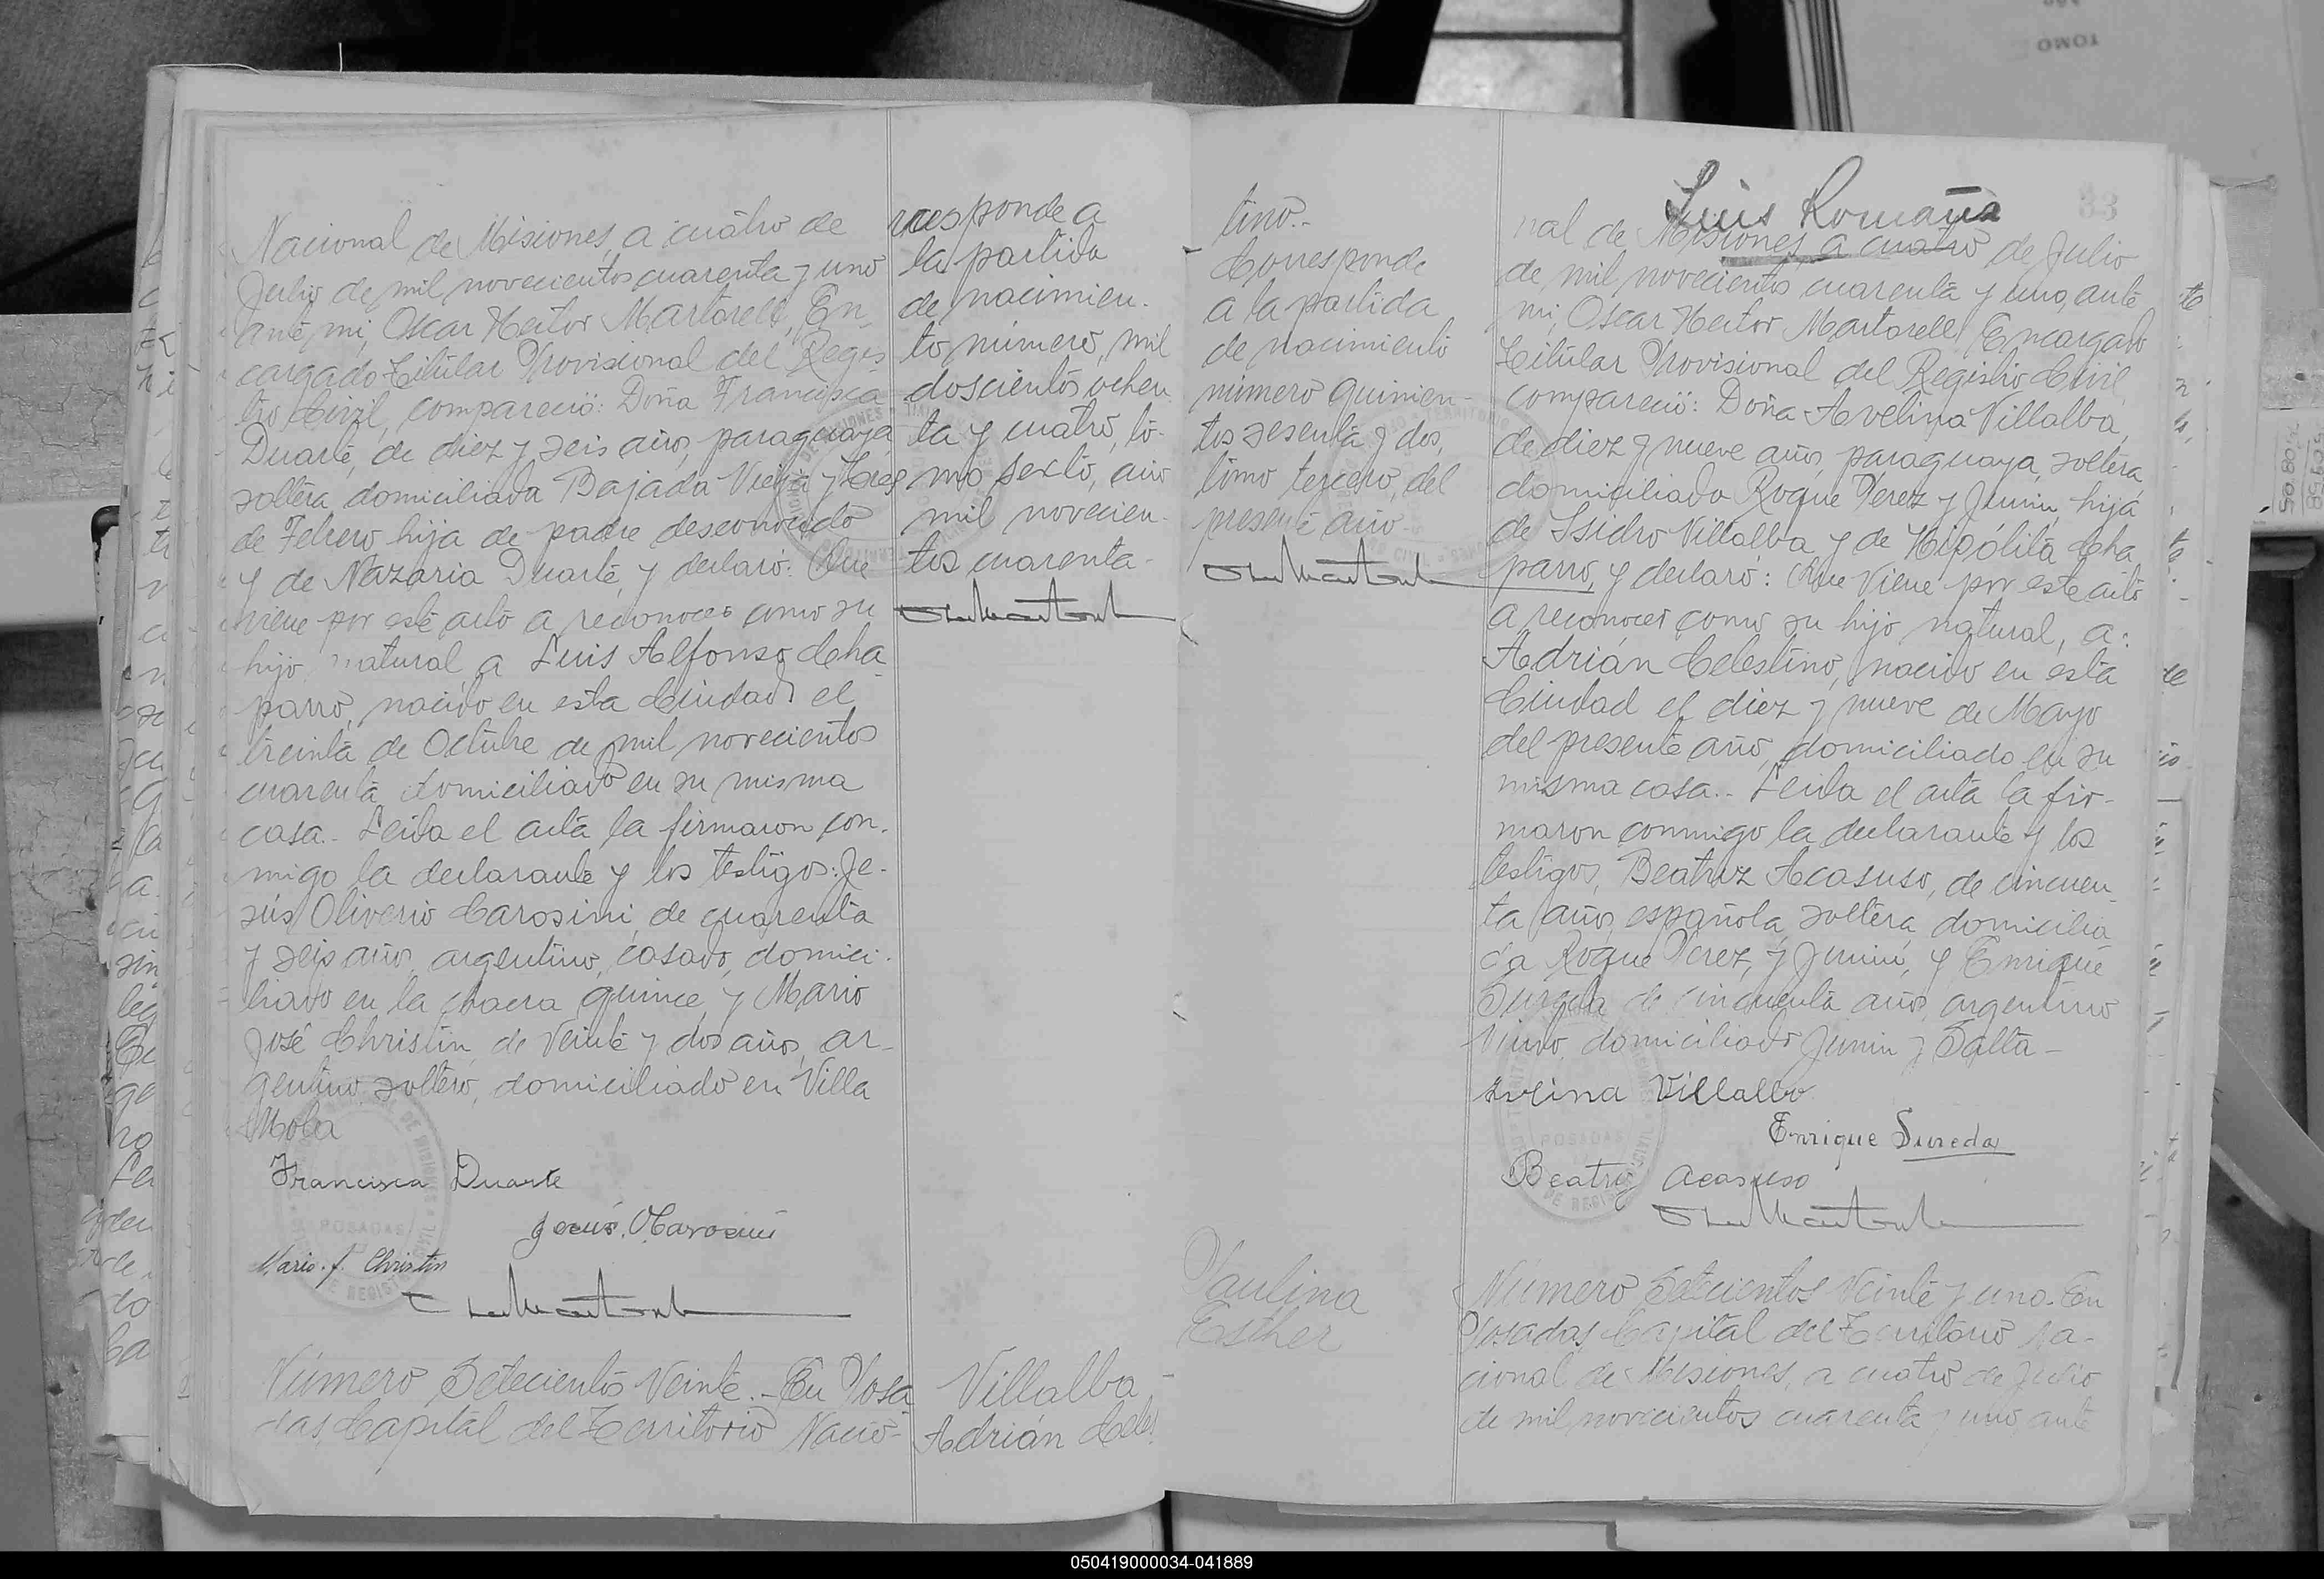 Nacional de Misiones, a cuatro de
Julio de mil novecientos cuarenta y uno
ante mi, Oscar Hector Martorell, En-
cargado Titular Provisional del Regis
tro Civil, compareció: Doña Francisca
Duarte, de diez y seis años, paraguaya
soltera, domiciliada Bajada Vieja y Tres
de Febrero hija de padre desconocido
y de Nazaria Duarte, y declaró: Que
viene por este acto a reconocer como su
hijo natural a Luis Alfonso Cha
parro, nacido en esta Ciudad el
treinta de Octubre de mil novecientos
cuarenta domiciliado en su misma
casa.- Leida el acta la firmaron con-
migo la declarante y los testigos: Je-
sús Oliverio Carosini, de cuarenta
y seis años, argentino, casado, domici-
liado en la chacra quince, y Mario
José Christin, de Veinte y dos años, ar-
gentino, soltero, domiciliado en Villa
Mola
Francisca Duarte
Jesús O Carosini
Mario J. Christin
Número Setecientos Veinte.- En Posa
das, Capital del Territorio Nacio-
rresponde a
la partida
de nacimien-
to número, mil
doscientos ochen
ta y cuatro, to-
mo sexto, año
mil novecien-
tos cuarenta-
Villalba
Adrián Celes
tino.-
Corresponde
a la partida
de nacimiento
número quinien-
tos sesenta y dos,
tomo tercero, del
presente año-
Paulina
Esther
Luis Romaña
33
nal de Misiones, a cuatro de Julio
de mil novecientos cuarenta y uno, ante
mi, Oscar Hector Martorell, Encargado
Titular Provisional del Registro Civil,
compareció: Doña Avelina Villalba,
de diez y nueve años, paraguaya, soltera,
domiciliada Roque Perez y Junin, hija
de Isidro Villalba y de Hipólita Cha
parro, y declaró: Que Viene por este acto
a reconocer como su hijo natural, a:
Adrián Celestino, nacido en esta
Ciudad el diez y nueve de Mayo
del presente año, domiciliado en su
misma casa.- Leida el acta la fir-
maron conmigo la declarante y los
testigos, Beatriz Acasuso, de cincuen
ta años, española, soltera domicilia
da Roque Perez, y Junin, y Enrique
Sureda de cincuenta años, argentino
Viudo, domiciliado Junin y Salta-
Avelina Villalba
Enrique Sureda
Beatriz Acasuso
Número Setecientos Veinte y uno.- En
Posadas, Capital del Territorio Na-
cional de Misiones, a cuatro de Julio
de mil novecientos cuarenta y uno, ante
TOMO
050419000034-041889